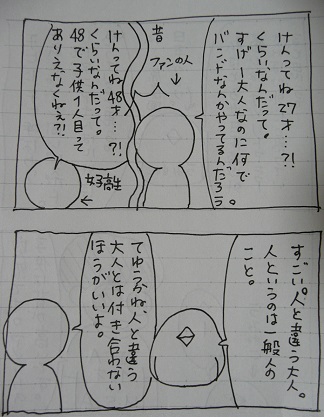 けんってね27才…?!
くらいなんだって。
すげー大人なのに何で
バンドなんかやってるんだろう。
昔
ファンの人
けんってね48才…?!
くらいなんだって。
48で子供1人目って
ありえなくねぇ?!
女子高生
すごい。人と違う大人。
人というのは一般人の
こと。
てゆうかね、人と違う
大人とは付き合わない
ほうがいいよ。